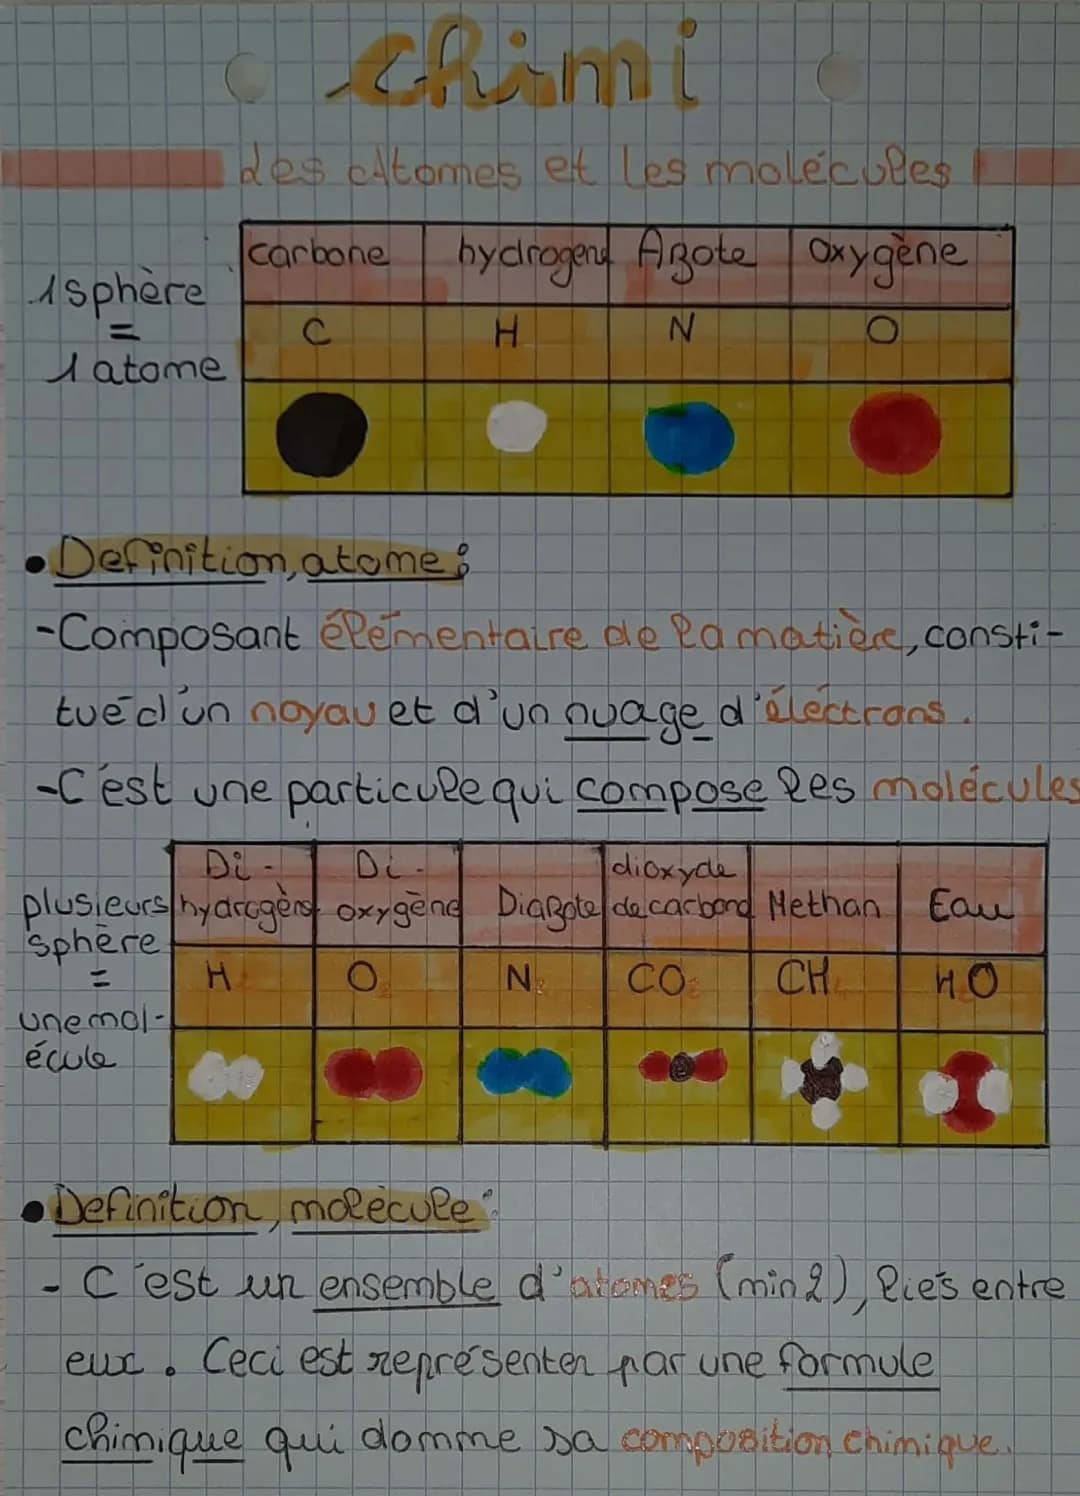 chimi
Les Atomes et les molécules
1 sphère
=
1 atome
carbone hydrogène Azote Oxygène
C H N O
• Definition, atome :
- Composant élémentaire de la matière, consti-
tué d'un noyau et d'un nuage d'éléctrons.
- C'est une particule qui compose les molécules
plusieurs
sphère
=
une mol-
écule
Di-
hydrogène
Di-
oxygène
Diazote
dioxyde
de carbone
Methan
Eau
H2 O2 N2 CO2 CH4 H2O
• Definition, molécule :
- C'est un ensemble d'atomes (min 2), liés entre
eux. Ceci est représenter par une formule
chimique qui domme sa composition chimique.